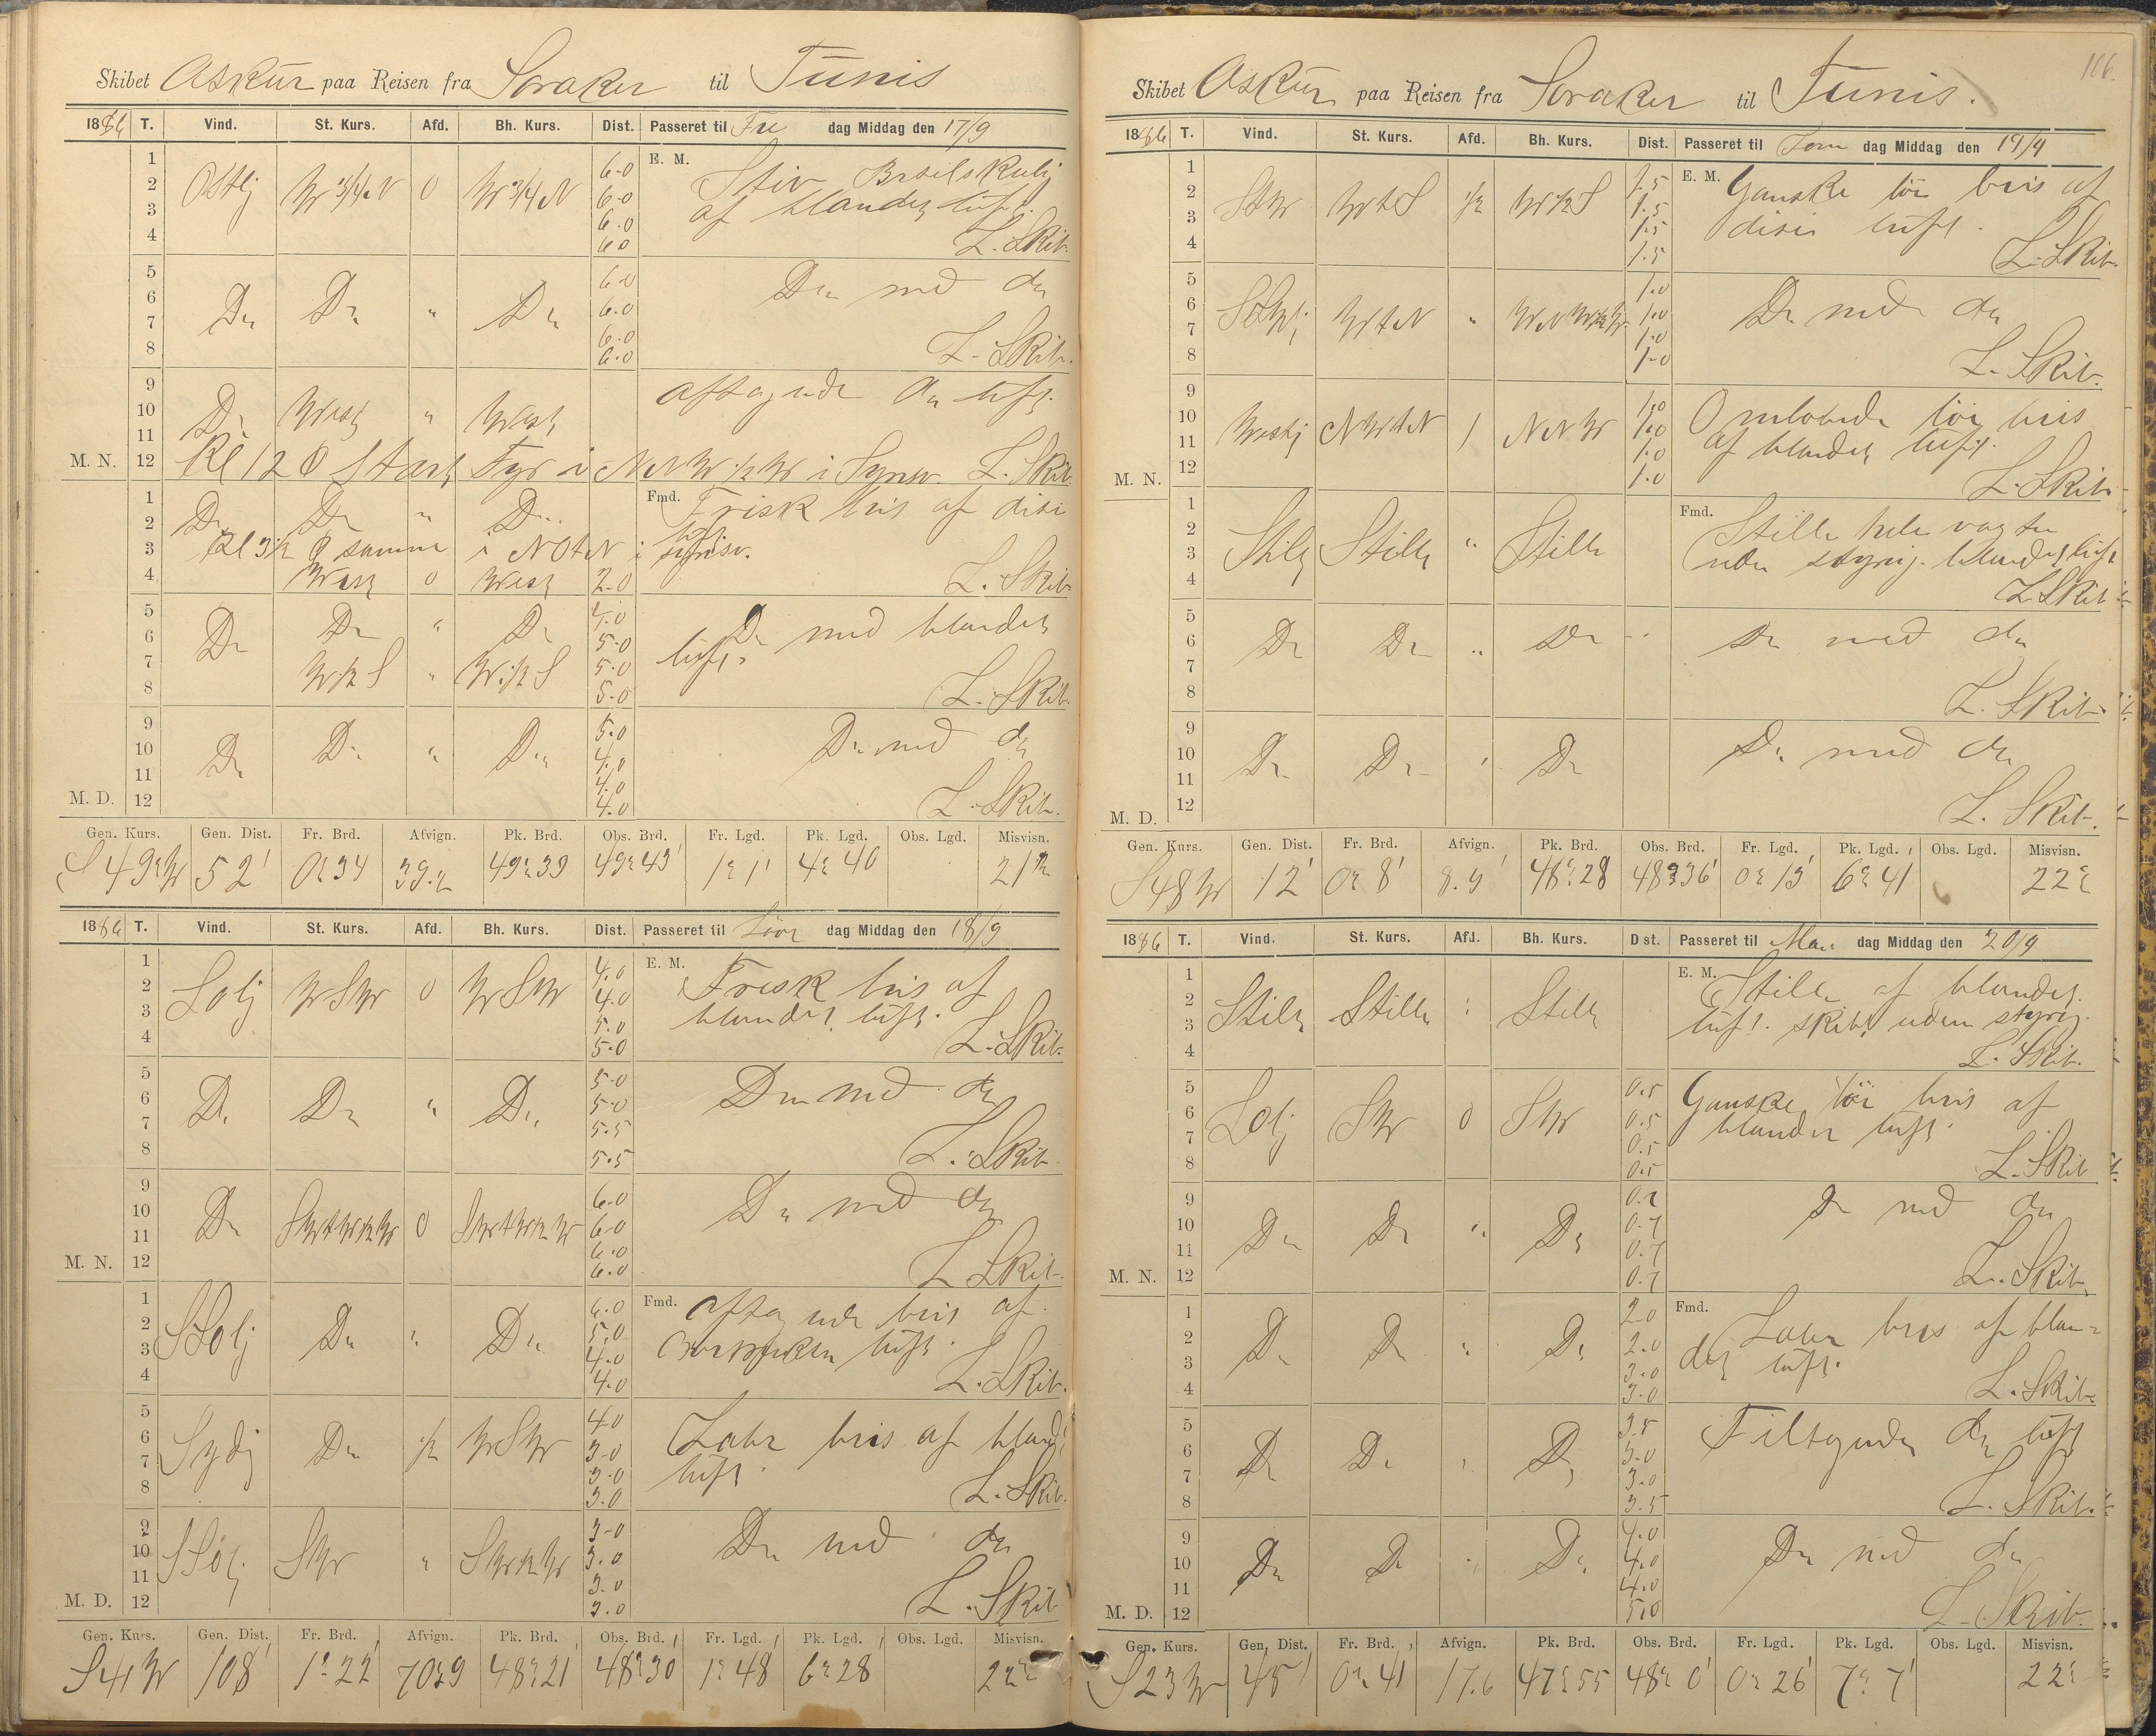 Skibet Askur paa Reisen fra Soraker til Tunis
1886 T. Vind. St. Kurs. Afd. Bh. Kurs. Dist. Passeret til Fre dag Middag den 17/9
1 6.0 E. M. Stiv
2 Ostlj W 3/4 N 0 W 3/4 N 6.0 af blandet luft.
3 6.0
4 6.0 L. Skib.
5 6.0 Do med do
6 Do Do " Do 6.0
7 6.0
8 6.0 L. Skib.
9 aftagende do luft.
10 Do West " West
11
M. N. 12 Kl 12 Start Fyr i NNW 1/2 W i Synsv. L. Skib.
1 Fmd. Frisk bris af disi
2 Do Do " Do luft
3 Kl 3 1/2 samme i NOtN i synsv.
4 West 0 West 2.0 L. Skib.
5 Do " Do 4.0 Do med blandet
6 Do 5.0 luft.
7 W 1/2 S " W 1/2 S 5.0
8 5.0 L. Skib.
9 5.0 Do med do
10 Do Do " Do 4.0
11 4.0
M. D. 12 4.0 L. Skib.
Gen. Kurs. Gen. Dist. Fr. Brd. Afvign. Pk. Brd. Obs. Brd. Fr. Lgd. Pk. Lgd. Obs. Lgd. Misvisn.
S 49° W 52' 0° 34 39.2 49° 39 49° 43' 1° 1' 4° 40 21 1/2
1886 T. Vind. St. Kurs. Afd. Bh. Kurs. Dist. Passeret til Löver dag Middag den 18/9
1 4.0 E. M. Frisk bris af
2 Solj WSW 0 WSW 4.0 blandet luft.
3 5.0
4 5.0 L. Skib.
5 5.0 Do med do
6 Do Do " Do 5.0
7 5.5
8 5.5 L. Skib.
9 6.0 Do med do
10 Do SWtW 1/2 W 0 SWtW 1/2 W 6.0
11 6.0
M. N. 12 6.0 L. Skib.
1 6.0 Fmd. aftagende bris af
2 SSolj Do " Do 5.0 luft.
3 4.0
4 4.0 L. Skib.
5 4.0 Labr bris af bland
6 Sydj Do 1/2 WSW 3.0 luft.
7 3.0
8 3.0 L. Skib.
9 3.0 Do med do
10 SSoj SW " SW 1/2 W 3.0
11 3.0
M. D. 12 3.0 L. Skib
Gen. Kurs. Gen. Dist. Fr. Brd. Afvign. Pk. Brd. Obs. Brd. Fr. Lgd. Pk. Lgd. Obs. Lgd. Misvisn.
S 41 W 108' 1° 22' 70.9 48° 21 48° 30' 1° 48' 6° 28' 22°
106.
Skibet Askur paa Reisen fra Soraker til Tunis.
1886 T. Vind. St. Kurs. Afd. Bh. Kurs. Dist. Passeret til Sön dag Middag den 19/9
1 1.5 E. M. Ganske löi bris af
2 StW WtS 1/2 W 1/2 S 1.5 disi luft.
3 1.5
4 1.5 L. Skib.
5 1.0 Do med do
6 WtN " 1.0
7 1.0
8 1.0 L. Skib.
9 1.0 Omlöbende löi bris
10 Westlj NWtN 1 NNW 1.0 af blandet luft.
11 1.0
M. N. 12 1.0 L. Skib.
1 Fmd. Stille hele vagten
2 Stille Stille " Stille uden styring. blandet luft
3
4 L. Skib.
5 Do med do
6 Do Do " Do
7
8 L. Skib.
9 Do med do
10 Do Do " Do
11
M. D. 12 L. Skib.
Gen. Kurs. Gen. Dist. Fr. Brd. Afvign. Pk. Brd. Obs. Brd. Fr. Lgd. Pk. Lgd. Obs. Lgd. Misvisn.
S 48 W 12' 0° 8' 8.9' 48° 28 48° 36' 0° 13' 6° 41' 22°
1886 T. Vind. St. Kurs. Afd. Bh. Kurs. Dist. Passeret til Man dag Middag den 20/9
1 E. M. Stille af blandet
2 Stille Stille " Stille luft. skibet uden styring.
3
4 L. Skib.
5 0.5 Ganske löi bris af
6 Solj SW 0 SW 0.5 blandet luft.
7 0.5
8 0.5 L. Skib
9 0.7 Do med do
10 Do Do " Do 0.7
11 0.7
M. N. 12 0.7 L. Skib.
1 2.0 Fmd. Labr bris af blan=
2 Do Do " Do 2.0 det luft.
3 3.0
4 3.0 L. Skib.
5 3.5 Tiltagende do luft
6 Do Do " Do 3.0
7 3.0
8 3.5 L. Skib.
9 4.0 Do med do
10 Do Do " Do 4.0
11 4.0
M. D. 12 5.0 L. Skib.
Gen. Kurs. Gen. Dist. Fr. Brd. Afvign. Pk. Brd. Obs. Brd. Fr. Lgd. Pk. Lgd. Obs. Lgd. Misvisn.
S 23 W 45' 0° 41' 17.6 47° 55 48° 0' 0° 26' 7° 7' 22°